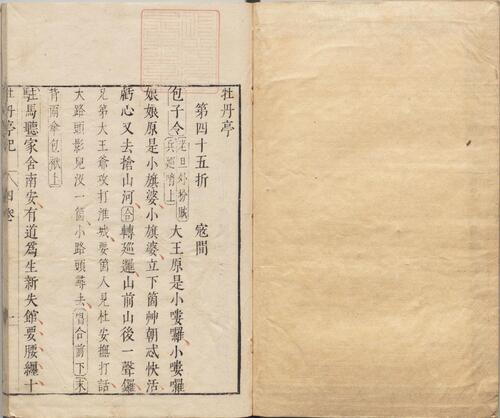 牡丹亭
第四十五折　寇間
包子令老旦外扮賊兵巡哨上大王原是小嘍囉小嘍囉
娘娘原是小旗婆小旗婆立下箇艸朝忒快活
虧心又去搶山河合轉巡邏山前山後一聲鑼
兄弟大王爺攻打淮城要箇人見杜安撫打話
大路頭影兒沒一箇小路頭尋去唱合前下末
背雨傘包袱上
駐馬聽家舍南安有道為生新失館要腰纏十
牡丹亭記
四卷